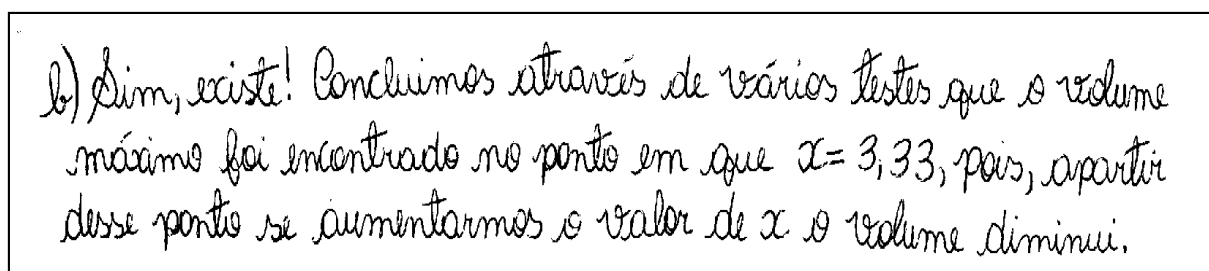 b) Sim, existe! Concluimos através de vários testes que o volume
máximo foi encontrado no ponto em que x = 3,33, pois, apartir
desse ponto se aumentarmos o valor de x o volume diminui.